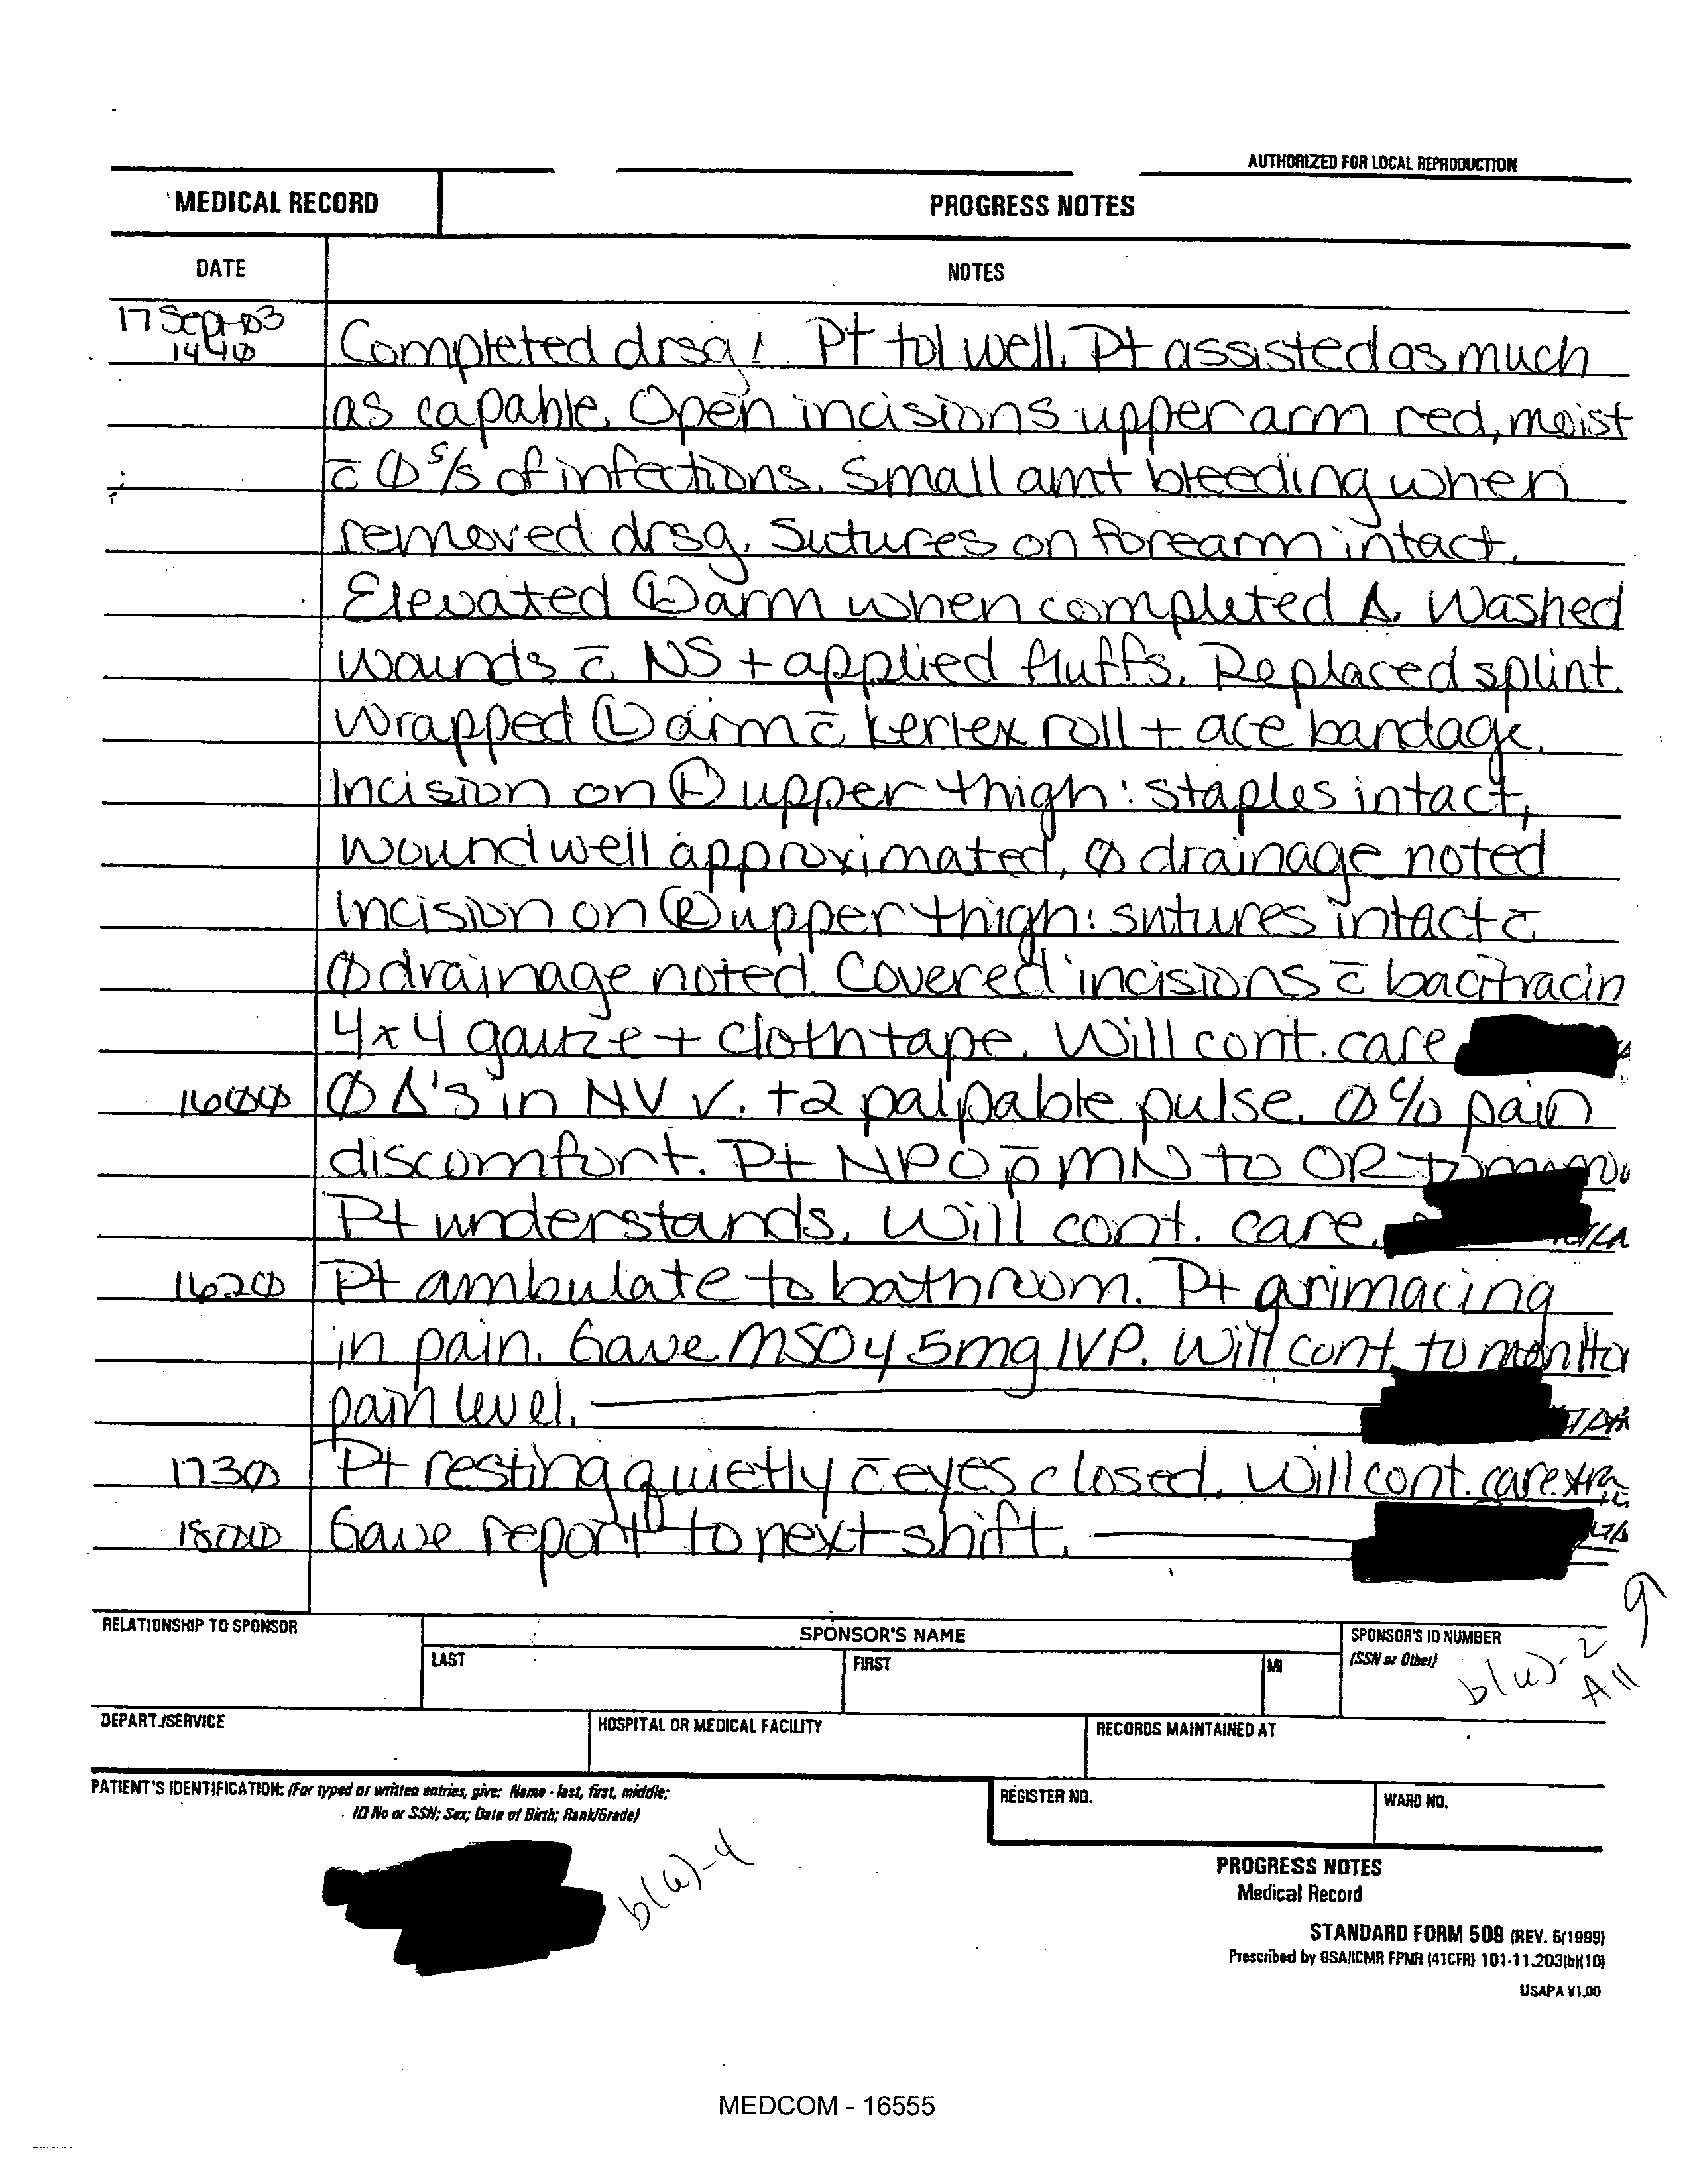 AUTHORIZED FOR LOCAL REPRODUCTION
MEDICAL RECORD
PROGRESS NOTES
DATE
NOTES
17 Sept 03
1440
Completed drsg. Pt tol well. Pt assisted as much
as capable. Open incisions upper arm red, moist
c̄ Ø s/s of infections. Small amt bleeding when
removed drsg. Sutures on forearm intact.
Elevated Ⓛ arm when completed Δ. Washed
wounds c̄ NS + applied fluffs. Replaced splint.
Wrapped Ⓛ arm c̄ kerlex roll + ace bandage.
Incision on Ⓛ upper thigh: staples intact,
wound well approximated, Ø drainage noted
Incision on Ⓡ upper thigh: sutures intact c̄
Ø drainage noted. Covered incisions c̄ bacitracin
4x4 gauze + cloth tape. Will cont. care
1600 Ø Δ's in NV √. +2 palpable pulse. Ø % pain
discomfort. Pt NPO p̄ MN to OR
Pt understands. Will cont. care.
1620 Pt ambulate to bathroom. Pt grimacing
in pain. Gave MSO4 5mg IVP. Will cont. to monitor
pain level.
1730 Pt resting quietly c̄ eyes closed. Will cont. care
1800 Gave report to next shift.
9
RELATIONSHIP TO SPONSOR
SPONSOR'S NAME
LAST
FIRST
MI
SPONSOR'S ID NUMBER
(SSN or Other)
b(6)-2
All
DEPART./SERVICE
HOSPITAL OR MEDICAL FACILITY
RECORDS MAINTAINED AT
PATIENT'S IDENTIFICATION: (For typed or written entries, give: Name - last, first, middle;
ID No or SSN; Sex; Date of Birth; Rank/Grade)
REGISTER NO.
WARD NO.
b(6)-4
PROGRESS NOTES
Medical Record
STANDARD FORM 509 (REV. 5/1999)
Prescribed by GSA/ICMR FPMR (41CFR) 101-11.203(b)(10)
USAPA V1.00
MEDCOM - 16555